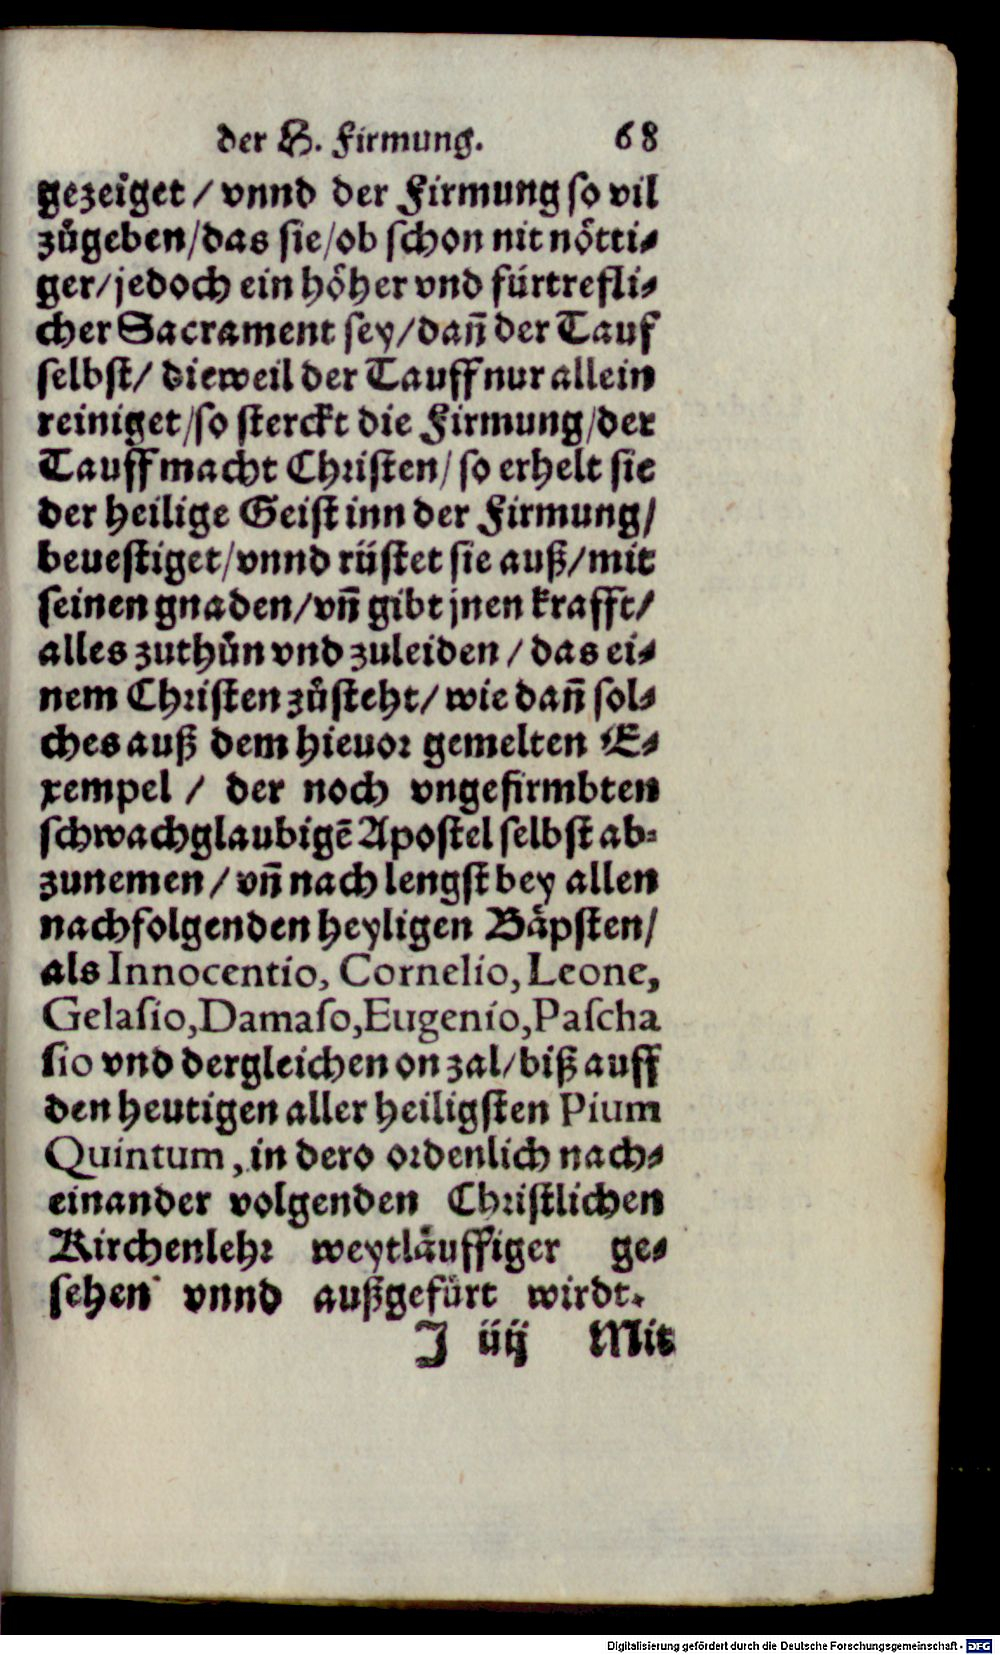 der H. Firmung. 68
gezeiget / vnnd der Firmung so vil
zůgeben/das sie/ob schon nit nötti⸗
ger/jedoch ein höher vnd fürtrefli⸗
cher Sacrament sey/dañ der Tauf
selbst/ dieweil der Tauff nur allein
reiniget/so sterckt die Firmung/der
Tauff macht Christen/ so erhelt sie
der heilige Geist inn der Firmung/
beuestiget/vnnd rüstet sie auß/mit
seinen gnaden/vñ gibt jnen krafft/
alles zuthůn vnd zuleiden / das ei⸗
nem Christen zůsteht/ wie dañ sol⸗
ches auß dem hieuor gemelten E⸗
xempel / der noch vngefirmbten
schwachglaubigē Apostel selbst ab⸗
zunemen / vñ nach lengst bey allen
nachfolgenden heyligen Bäpsten/
als Innocentio, Cornelio, Leone,
Gelasio, Damaso, Eugenio, Pascha
sio vnd dergleichen on zal/biß auff
den heutigen aller heiligsten Pium
Quintum, in dero ordenlich nach⸗
einander volgenden Christlichen
Kirchenlehr weytläuffiger ge⸗
sehen vnnd außgefürt wirdt.
J iiij Mit
Digitalisierung gefördert durch die Deutsche Forschungsgemeinschaft - DFG